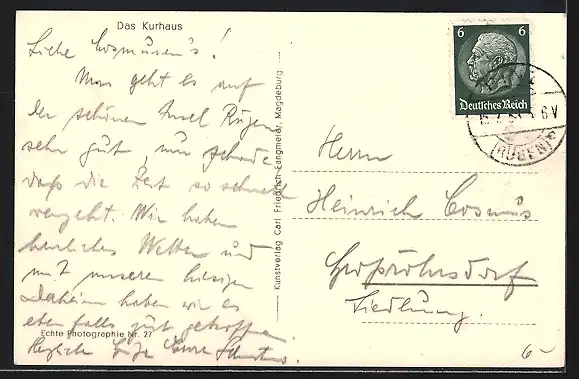 Das Kurhaus
Liebe Cosmusen's!
Uns geht es auf
der schönen Insel Rügen
sehr gut, nur schade
daß die Zeit so schnell
vergeht. Wir haben
herrliches Wetter und
mit unserem hiesigen
Daheim haben wir es
eben falls gut getroffen
Herzliche Grüße Eure
Echte Photographie Nr. 27
Kunstverlag Carl Friedrich Fangmeier, Magdeburg
6 6
Deutsches Reich
(RÜGEN)
Herrn
Heinrich Cosmus
Siedlung.
6-